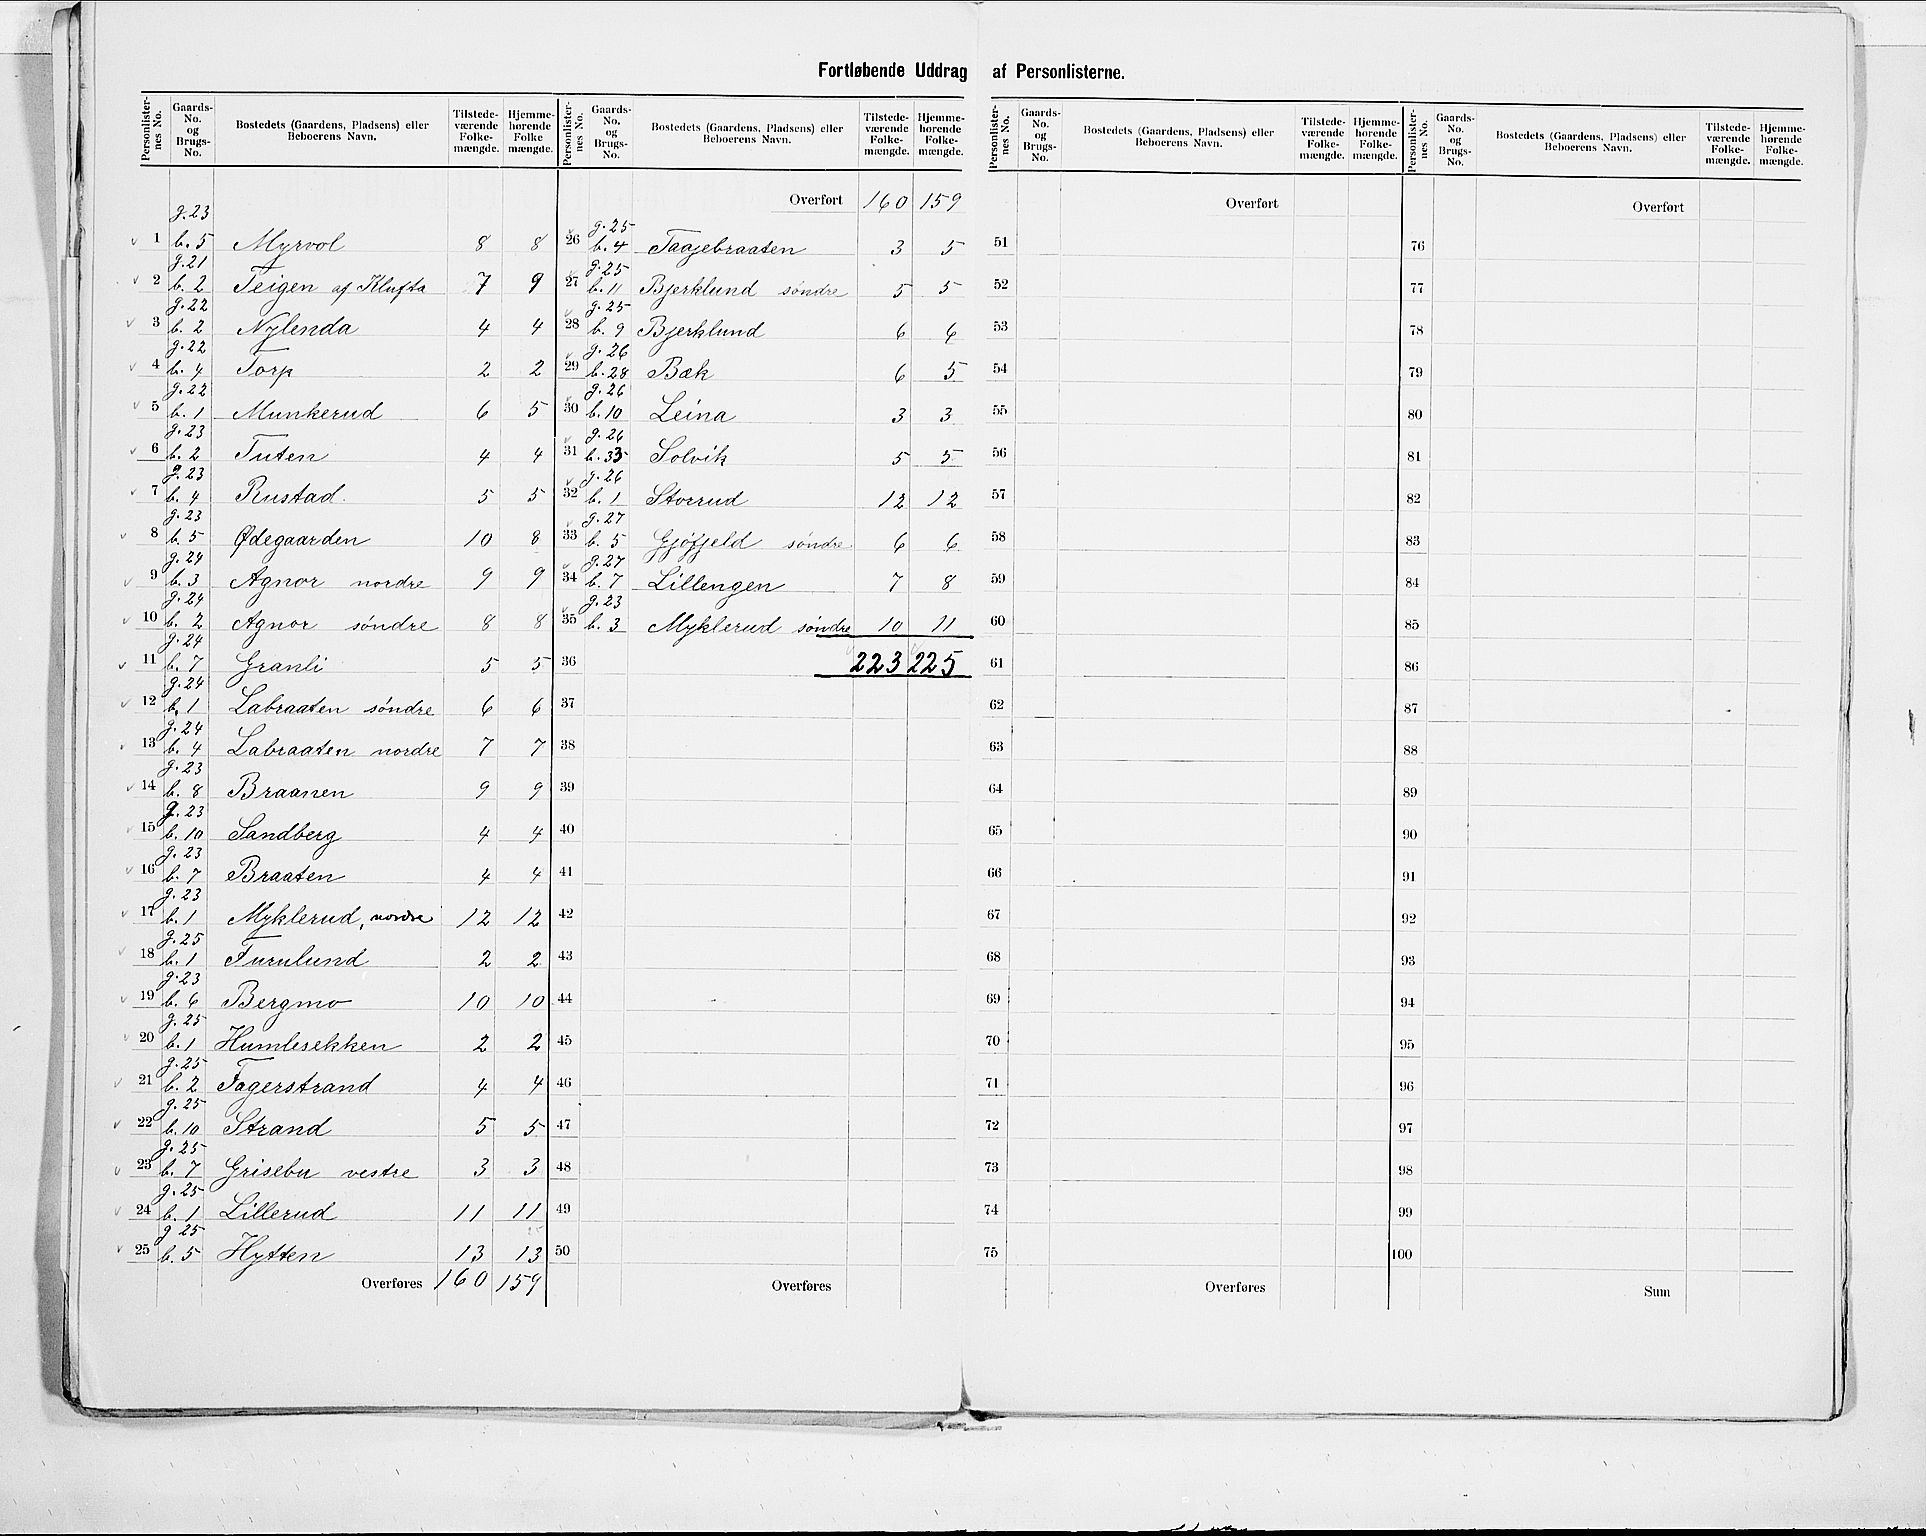 Fortløbende Uddrag af Personlisterne.
Personlisternes No. | Gaards-No. og Brugs-No. | Bostedets (Gaardens, Pladsens) eller Beboerens Navn. | Tilstedeværende Folkemængde. | Hjemmehørende Folkemængde.
1 g. 23 b. 5 Myrvol 8 8
2 g. 21 b. 2 Teigen af Klufta 7 9
3 g. 22 b. 2 Nylenda 4 4
4 g. 22 b. 4 Torp 2 2
5 g. 22 b. 1 Munkerud 6 5
6 g. 23 b. 2 Tuten 4 4
7 g. 23 b. 4 Rustad 5 5
8 g. 23 b. 5 Ødegaarden 10 8
9 g. 24 b. 3 Agnor nordre 9 9
10 g. 24 b. 2 Agnor søndre 8 8
11 g. 24 b. 7 Granli 5 5
12 g. 24 b. 1 Labraaten søndre 6 6
13 g. 24 b. 4 Labraaten nordre 7 7
14 g. 23 b. 8 Braanen 9 9
15 g. 23 b. 10 Sandberg 4 4
16 g. 23 b. 7 Braaten 4 4
17 g. 23 b. 1 Myklerud, nordre 12 12
18 g. 25 b. 1 Furulund 2 2
19 g. 23 b. 6 Bergmo 10 10
20 g. 25 b. 1 Humlesekken 2 2
21 g. 25 b. 2 Fagerstrand 4 4
22 g. 25 b. 10 Strand 5 5
23 g. 25 b. 7 Grisebu vestre 3 3
24 g. 25 b. 1 Lillerud 11 11
25 g 25 b. 5 Hytten 13 13
Overføres 160 159
Personlisternes No. | Gaards-No. og Brugs-No. | Bostedets (Gaardens, Pladsens) eller Beboerens Navn. | Tilstedeværende Folkemængde. | Hjemmehørende Folkemængde.
Overført 160 159
26 g. 25 b. 4 Taajebraaten 3 5
27 g. 25 b. 11 Bjerklund søndre 5 5
28 g. 25 b. 9 Bjerklund 6 6
29 g. 26 b. 28 Bæk 6 5
30 g. 26 b. 10 Leina 3 3
31 g. 26 b. 33 Solvik 5 5
32 g. 26 b. 1 Storrud 12 12
33 g. 27 b. 5 Gjøfjeld søndre 6 6
34 g. 27 b. 7 Lillengen 7 8
35 g. 23 b. 3 Myklerud søndre 10 11
36 223 225
37
38
39
40
41
42
43
44
45
46
47
48
49
50
Overføres
Personlisternes No. | Gaards-No. og Brugs-No. | Bostedets (Gaardens, Pladsens) eller Beboerens Navn. | Tilstedeværende Folkemængde. | Hjemmehørende Folkemængde.
Overført
51
52
53
54
55
56
57
58
59
60
61
62
63
64
65
66
67
68
69
70
71
72
73
74
75
Overføres
Personlisternes No. | Gaards-No. og Brugs-No. | Bostedets (Gaardens, Pladsens) eller Beboerens Navn. | Tilstedeværende Folkemængde. | Hjemmehørende Folkemængde.
Overført
76
77
78
79
80
81
82
83
84
85
86
87
88
89
90
91
92
93
94
95
96
97
98
99
100
Sum